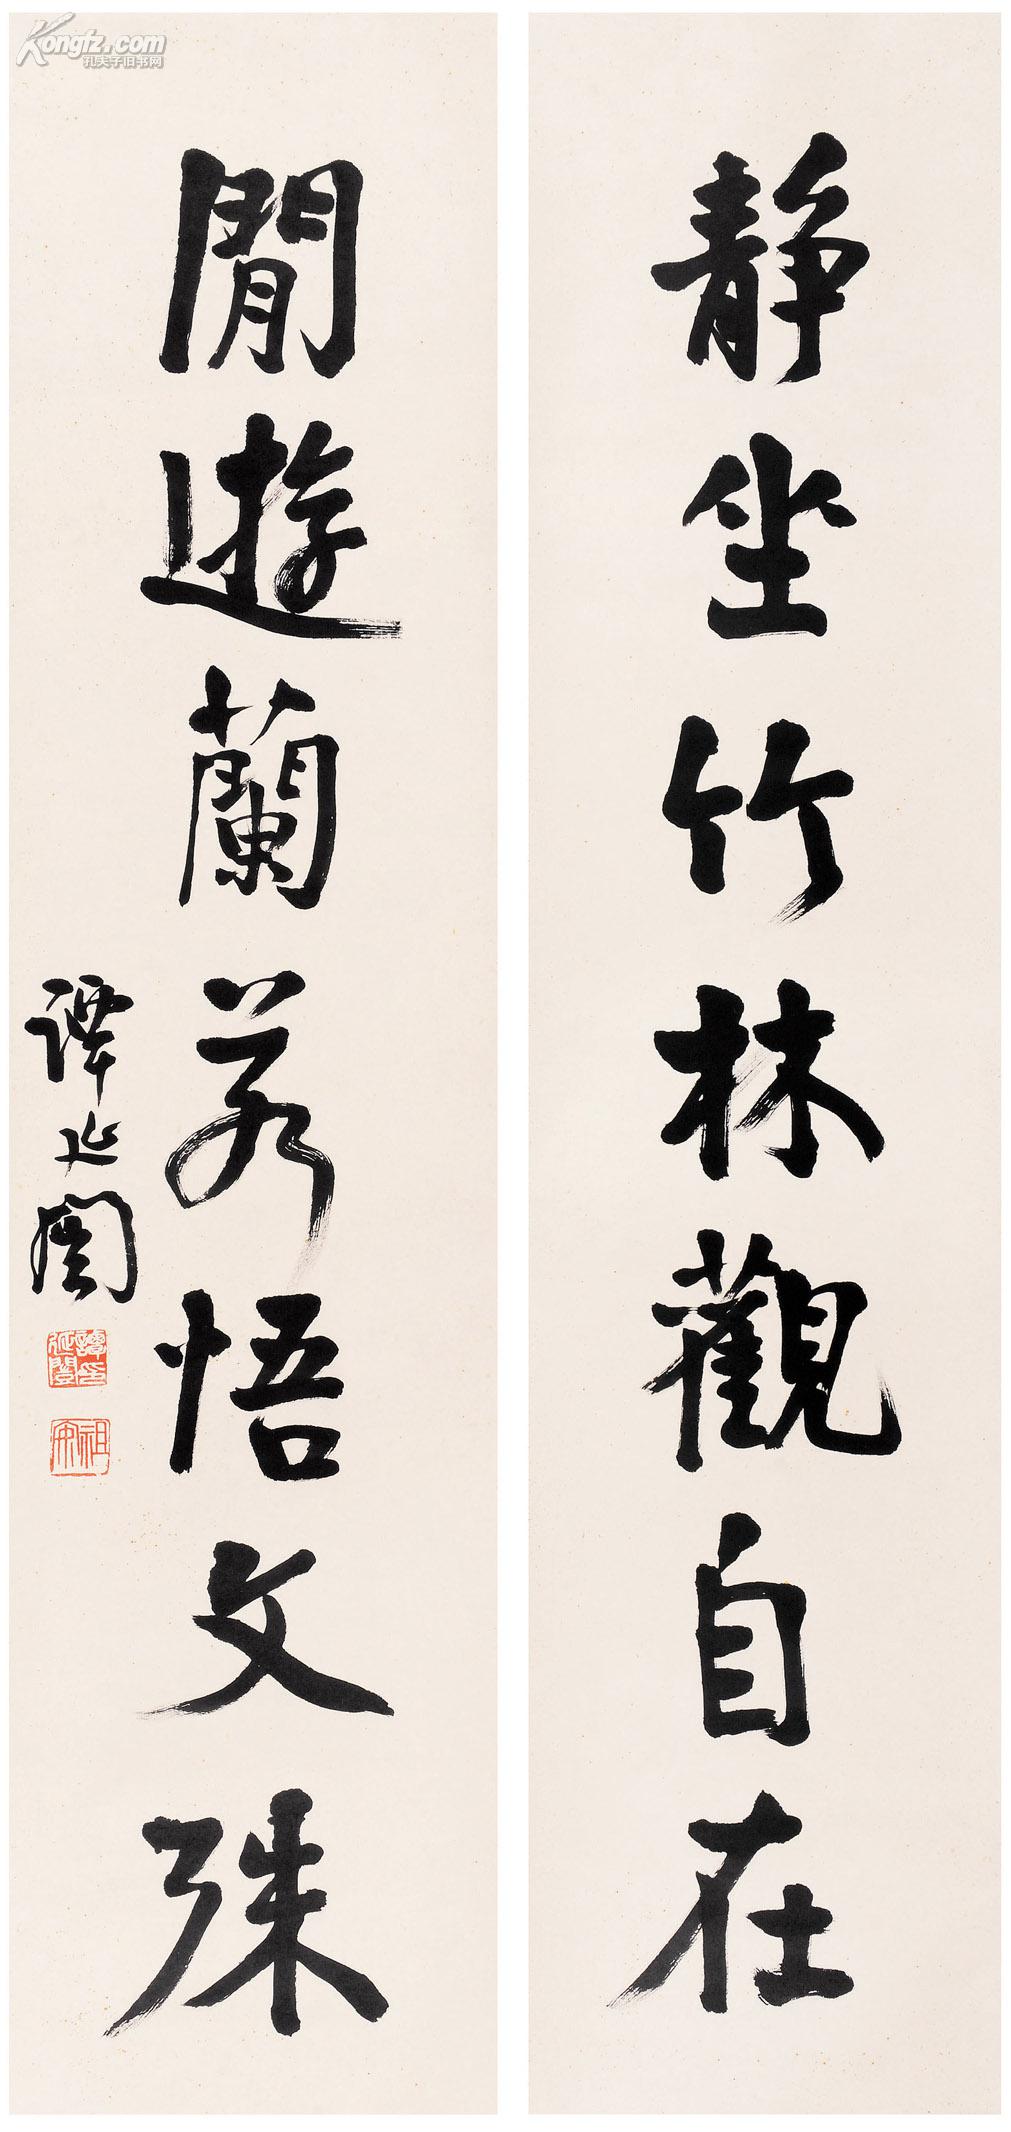 靜坐竹林觀自在
閒遊蘭若悟文殊
譚延闓
譚延闓印
祖安
Kongfz.com
孔夫子旧书网